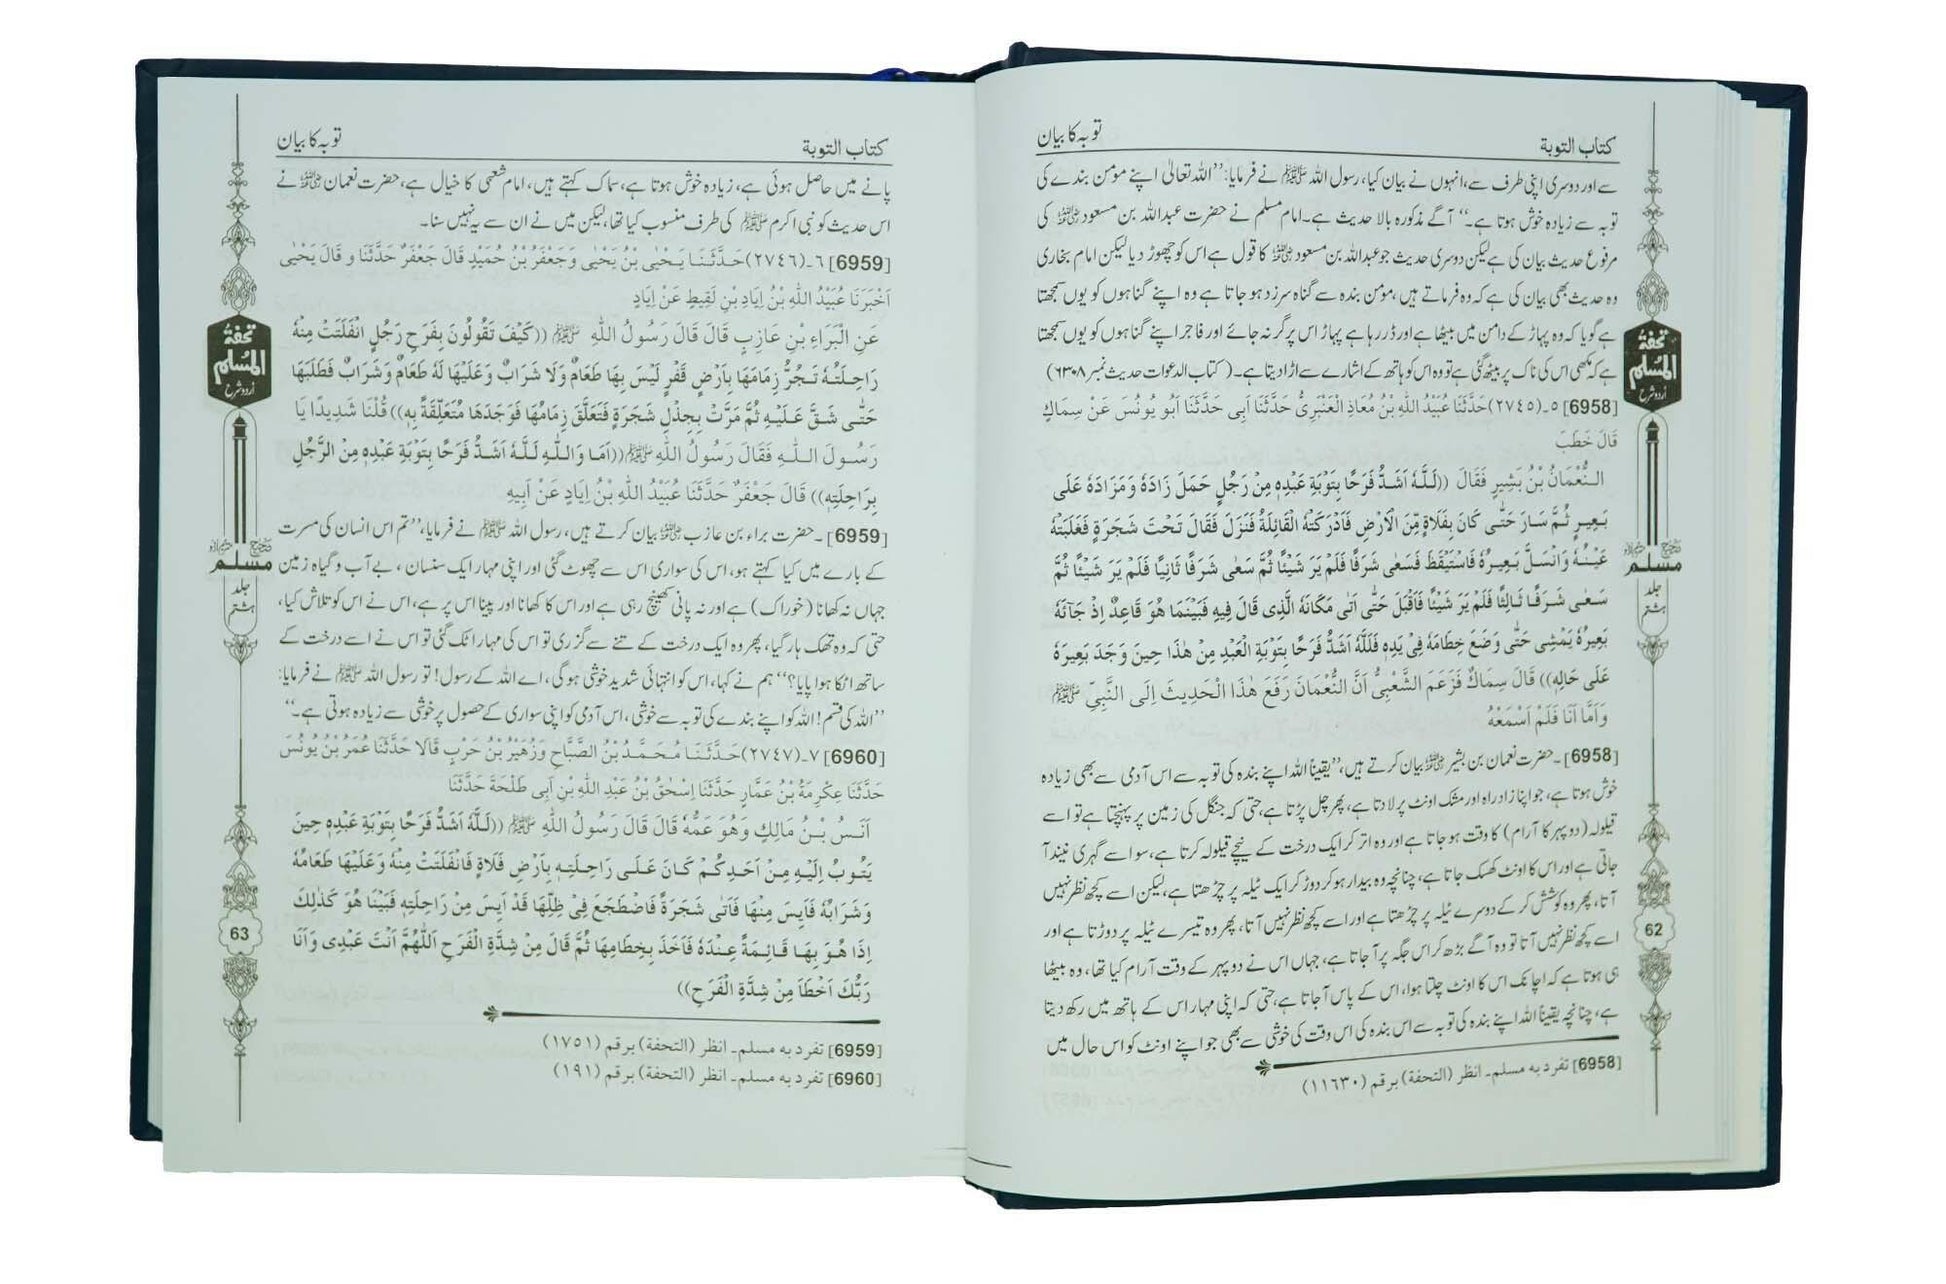 كتاب التوبة
توبہ کا بیان
سے اور دوسری اپنی طرف سے، انہوں نے بیان کیا، رسول اللہ ﷺ نے فرمایا: ’’اللہ تعالیٰ اپنے مومن بندے کی
توبہ سے زیادہ خوش ہوتا ہے۔‘‘ آگے مذکورہ بالا حدیث ہے۔ امام مسلم نے حضرت عبداللہ بن مسعود ؓ کی
مرفوع حدیث بیان کی ہے لیکن دوسری حدیث جو عبداللہ بن مسعود ؓ کا قول ہے اس کو چھوڑ دیا لیکن امام بخاری
وہ حدیث بھی بیان کی ہے کہ وہ فرماتے ہیں، مومن بندہ سے گناہ سرزد ہو جاتا ہے وہ اپنے گناہوں کو یوں سمجھتا
ہے گویا کہ وہ پہاڑ کے دامن میں بیٹھا ہے اور ڈر رہا ہے پہاڑ اس پر گر نہ جائے اور فاجر اپنے گناہوں کو یوں سمجھتا
ہے کہ مکھی اس کی ناک پر بیٹھ گئی ہے تو وہ اس کو ہاتھ کے اشارے سے اڑا دیتا ہے۔ (کتاب الدعوات حدیث نمبر ٦٣٠٨)
[6958] ٥۔(٢٧٤٥) حَدَّثَنَا عُبَيْدُ اللّٰهِ بْنُ مُعَاذٍ الْعَنْبَرِيُّ حَدَّثَنَا أَبِى حَدَّثَنَا أَبُو يُونُسَ عَنْ سِمَاكٍ
قَالَ خَطَبَ
النُّعْمَانُ بْنُ بَشِيرٍ فَقَالَ ((لَلّٰهُ اَشَدُّ فَرَحًا بِتَوْبَةِ عَبْدِهٖ مِنْ رَجُلٍ حَمَلَ زَادَهٗ وَمَزَادَهٗ عَلٰى
بَعِيرٍ ثُمَّ سَارَ حَتّٰى كَانَ بِفَلَاةٍ مِّنَ الْاَرْضِ فَاَدْرَكَتْهُ الْقَائِلَةُ فَنَزَلَ فَقَالَ تَحْتَ شَجَرَةٍ فَغَلَبَتْهُ
عَيْنُهٗ وَانْسَلَّ بَعِيرُهٗ فَاسْتَيْقَظَ فَسَعٰى شَرَفًا فَلَمْ يَرَ شَيْئًا ثُمَّ سَعٰى شَرَفًا ثَانِيًا فَلَمْ يَرَ شَيْئًا ثُمَّ
سَعٰى شَرَفًا ثَالِثًا فَلَمْ يَرَ شَيْئًا فَاَقْبَلَ حَتّٰى اَتٰى مَكَانَهُ الَّذِى قَالَ فِيهِ فَبَيْنَمَا هُوَ قَاعِدٌ اِذْ جَآئَهٗ
بَعِيرُهٗ يَمْشِى حَتّٰى وَضَعَ خِطَامَهٗ فِىْ يَدِهٖ فَلَلّٰهُ اَشَدُّ فَرَحًا بِتَوْبَةِ الْعَبْدِ مِنْ هٰذَا حِينَ وَجَدَ بَعِيرَهٗ
عَلٰى حَالِهٖ)) قَالَ سِمَاكٌ فَزَعَمَ الشَّعْبِىُّ اَنَّ النُّعْمَانَ رَفَعَ هٰذَا الْحَدِيثَ اِلَى النَّبِىِّ ﷺ
وَاَمَّا اَنَا فَلَمْ اَسْمَعْهُ
[6958]۔ حضرت نعمان بن بشیر ؓ بیان کرتے ہیں، ’’یقیناً اللہ اپنے بندہ کی توبہ سے اس آدمی سے بھی زیادہ
خوش ہوتا ہے، جو اپنا زاد راہ اور مشک اونٹ پر لادتا ہے، پھر چل پڑتا ہے، حتی کہ جنگل کی زمین پر پہنچتا ہے تو اسے
قیلولہ (دوپہر کا آرام) کا وقت ہو جاتا ہے اور وہ اتر کر ایک درخت کے نیچے قیلولہ کرتا ہے، سو اسے گہری نیند آ
جاتی ہے اور اس کا اونٹ کھسک جاتا ہے، چنانچہ وہ بیدار ہو کر دوڑ کر ایک ٹیلہ پر چڑھتا ہے، لیکن اسے کچھ نظر نہیں
آتا، پھر وہ کوشش کر کے دوسرے ٹیلہ پر چڑھتا ہے اور اسے کچھ نظر نہیں آتا، پھر وہ تیسرے ٹیلہ پر دوڑتا ہے اور
اسے کچھ نظر نہیں آتا تو وہ آگے بڑھ کر اس جگہ پر آ جاتا ہے، جہاں اس نے دوپہر کے وقت آرام کیا تھا، وہ بیٹھا
ہی ہوتا ہے کہ اچانک اس کا اونٹ چلتا ہوا، اس کے پاس آ جاتا ہے، حتی کہ اپنی مہار اس کے ہاتھ میں رکھ دیتا
ہے، چنانچہ یقیناً اللہ اپنے بندہ کی توبہ سے اس بندہ کی اس وقت کی خوشی سے بھی جو اپنے اونٹ کو اس حال میں
[6958] تفرد به مسلم۔ انظر (التحفة) برقم (١١٦٣٠)
تحفة
المسلم
اردو شرح
صحیح
مسلم
جلد
ہشتم
62
كتاب التوبة
توبہ کا بیان
پانے میں حاصل ہوئی ہے، زیادہ خوش ہوتا ہے، سماک کہتے ہیں، امام شعمی کا خیال ہے، حضرت نعمان ؓ نے
اس حدیث کو نبی اکرم ﷺ کی طرف منسوب کیا تھا، لیکن میں نے ان سے یہ نہیں سنا۔
[6959] ٦۔(٢٧٤٦) حَدَّثَنَا يَحْيَى بْنُ يَحْيٰى وَجَعْفَرُ بْنُ حُمَيْدٍ قَالَ جَعْفَرٌ حَدَّثَنَا و قَالَ يَحْيٰى
اَخْبَرَنَا عُبَيْدُ اللّٰهِ بْنُ اِيَادِ بْنِ لَقِيطٍ عَنْ اِيَادٍ
عَنِ الْبَرَاءِ بْنِ عَازِبٍ قَالَ قَالَ رَسُولُ اللّٰهِ ﷺ ((كَيْفَ تَقُولُونَ بِفَرَحِ رَجُلٍ انْفَلَتَتْ مِنْهُ
رَاحِلَتُهٗ تَجُرُّ زِمَامَهَا بِاَرْضٍ قَفْرٍ لَيْسَ بِهَا طَعَامٌ وَلَا شَرَابٌ وَعَلَيْهَا لَهٗ طَعَامٌ وَشَرَابٌ فَطَلَبَهَا
حَتّٰى شَقَّ عَلَيْهِ ثُمَّ مَرَّتْ بِجِذْلِ شَجَرَةٍ فَتَعَلَّقَ زِمَامُهَا فَوَجَدَهَا مُتَعَلِّقَةً بِهٖ)) قُلْنَا شَدِيدًا يَا
رَسُولَ اللّٰهِ فَقَالَ رَسُولُ اللّٰهِ ﷺ ((اَمَا وَاللّٰهِ لَلّٰهُ اَشَدُّ فَرَحًا بِتَوْبَةِ عَبْدِهٖ مِنَ الرَّجُلِ
بِرَاحِلَتِهٖ)) قَالَ جَعْفَرٌ حَدَّثَنَا عُبَيْدُ اللّٰهِ بْنُ اِيَادٍ عَنْ اَبِيهِ
[6959]۔ حضرت براء بن عازب ؓ بیان کرتے ہیں، رسول اللہ ﷺ نے فرمایا، ’’تم اس انسان کی مسرت
کے بارے میں کیا کہتے ہو، اس کی سواری اس سے چھوٹ گئی اور اپنی مہار ایک سنسان، بے آب و گیاہ زمین
جہاں نہ کھانا (خوراک) ہے اور نہ پانی کھینچ رہی ہے اور اس کا کھانا اور پینا اس پر ہے، اس نے اس کو تلاش کیا،
حتی کہ وہ تھک ہار گیا، پھر وہ ایک درخت کے تنے سے گزری تو اس کی مہار اٹک گئی تو اس نے اسے درخت کے
ساتھ اٹکا ہوا پایا؟‘‘ ہم نے کہا، اس کو انتہائی شدید خوشی ہوگی، اے اللہ کے رسول! تو رسول اللہ ﷺ نے فرمایا:
’’اللہ کی قسم! اللہ کو اپنے بندے کی توبہ سے خوشی، اس آدمی کو اپنی سواری کے حصول پر خوشی سے زیادہ ہوتی ہے۔‘‘
[6960] ٧۔(٢٧٤٧) حَدَّثَنَا مُحَمَّدُ بْنُ الصَّبَّاحِ وَزُهَيْرُ بْنُ حَرْبٍ قَالَا حَدَّثَنَا عُمَرُ بْنُ يُونُسَ
حَدَّثَنَا عِكْرِمَةُ بْنُ عَمَّارٍ حَدَّثَنَا اِسْحٰقُ بْنُ عَبْدِ اللّٰهِ بْنِ اَبِى طَلْحَةَ حَدَّثَنَا
اَنَسُ بْنُ مَالِكٍ وَهُوَ عَمُّهٗ قَالَ قَالَ رَسُولُ اللّٰهِ ﷺ ((لَلّٰهُ اَشَدُّ فَرَحًا بِتَوْبَةِ عَبْدِهٖ حِينَ
يَتُوبُ اِلَيْهِ مِنْ اَحَدِكُمْ كَانَ عَلٰى رَاحِلَتِهٖ بِاَرْضِ فَلَاةٍ فَانْفَلَتَتْ مِنْهُ وَعَلَيْهَا طَعَامُهٗ
وَشَرَابُهٗ فَاَيِسَ مِنْهَا فَاَتٰى شَجَرَةً فَاضْطَجَعَ فِىْ ظِلِّهَا قَدْ اَيِسَ مِنْ رَاحِلَتِهٖ فَبَيْنَا هُوَ كَذٰلِكَ
اِذَا هُوَ بِهَا قَائِمَةً عِنْدَهٗ فَاَخَذَ بِخِطَامِهَا ثُمَّ قَالَ مِنْ شِدَّةِ الْفَرَحِ اَللّٰهُمَّ اَنْتَ عَبْدِى وَاَنَا
رَبُّكَ اَخْطَاَ مِنْ شِدَّةِ الْفَرَحِ))
[6959] تفرد به مسلم۔ انظر (التحفة) برقم (١٧٥١)
[6960] تفرد به مسلم۔ انظر (التحفة) برقم (١٩١)
تحفة
المسلم
اردو شرح
صحیح
مسلم
جلد
ہشتم
63